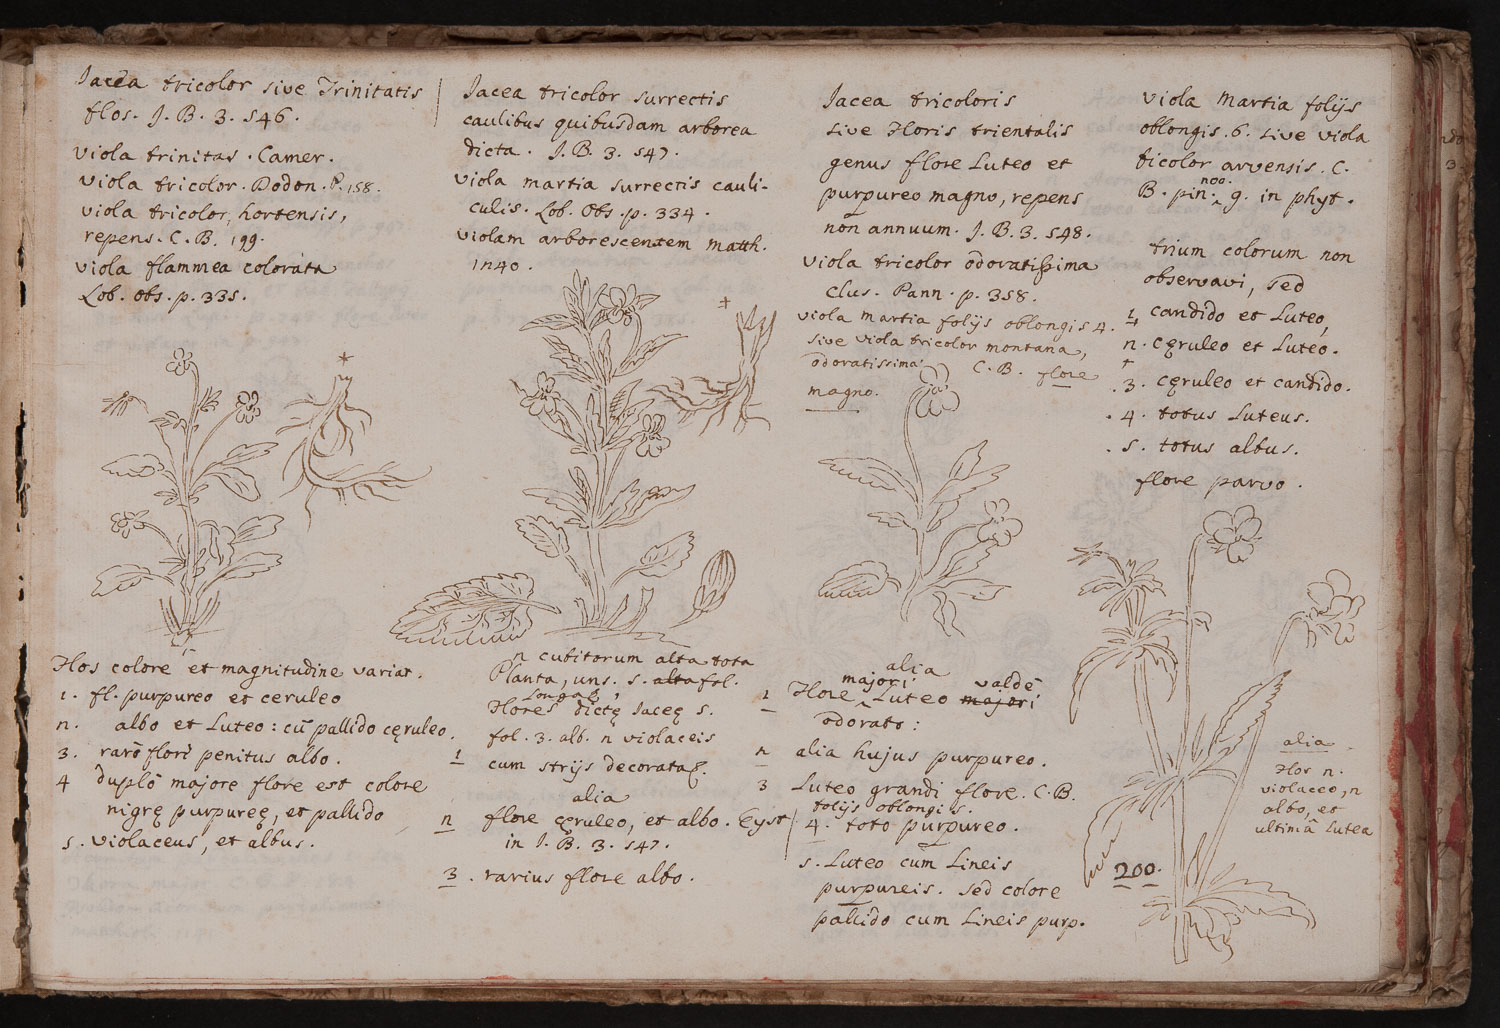 Jacea tricolor sive Trinitatis
flos. J. B. 3. 546.
viola trinitas. Camer.
viola tricolor. Dodon. P. 158.
viola tricolor, hortensis,
repens. C. B. 199.
viola flammea colorata
Lob. obs. p. 335.
*
Flos colore et magnitudine variat.
1. fl. purpureo et ceruleo
n. albo et Luteo: cū pallido cęruleo.
3. rarò flori penitus albo.
4 duplò majore flore est colore
nigrę purpureę, et pallido
5. violaceus, et albus.
Jacea tricolor surrectis
caulibus quibusdam arborea
dicta. J. B. 3. 547.
viola martia surrectis cauli-
culis. Lob. Obs. p. 334.
violam arborescentem matth.
in 40.
+
n cubitorum alta tota
Planta, uns. s. alta fol.
Longae,
Flores dictę Jaceę s.
fol. 3. alb. n violaceis
1 cum strijs decorata
alia
n flore cęruleo, et albo. Eyst
in J. B. 3. 547.
3. rarius flore albo.
Jacea tricoloris
sive Floris trientalis
genus flore Luteo et
purpureo magno, repens
non annuum. J. B. 3. 548.
viola tricolor odoratissima
Clus. Pann. p. 358.
viola martia folijs oblongis 4.
sive viola tricolor montana,
odoratissima C. B. flore
magno.
alia
majori valdè
1 Flore ‸ Luteo majori
odorato:
n alia hujus purpureo.
3 Luteo grandi flore. C. B.
folijs oblongis.
4. toto purpureo.
5. Luteo cum Lineis
purpureis. sed colore
pallido cum Lineis purp.
viola martia folijs
oblongis. 6. sive viola
bicolor arvensis. C.
noo.
B. pin. ‸ 9. in phyt.
trium colorum non
observavi, sed
1 candido et Luteo,
n. cęruleo et Luteo.
+
3. cęruleo et candido.
4. totus Luteus.
5. totus albus.
flore parvo.
alia
Flos n.
violaceo, n
albo, et
ultimâ Lutea
200.